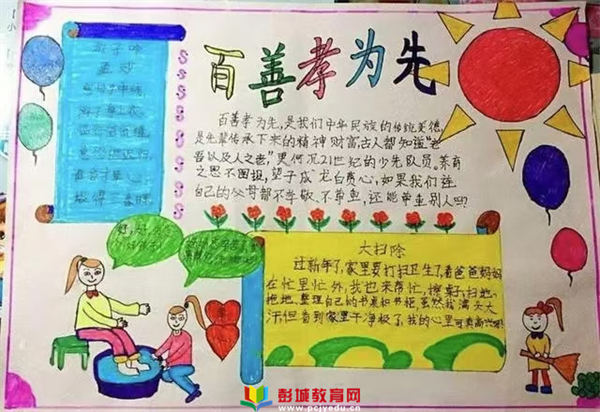 百善孝为先
游子吟
孟郊
慈母手中线
游子身上衣
临行密密缝
意恐迟迟归
谁言寸草心
报得三春晖
百善孝为先,是我们中华民族的传统美德,
是先辈传承下来的精神财富古人都知道“老
吾以及人之老,”更何况21世纪的少先队员,养育
之恩不图报,望子成龙白费心,如果我们连
自己的父母都不孝敬、不尊重,还能尊重别人吗?
大扫除
过新年了,家里要打扫卫生了,看爸爸妈妈
在忙里忙外,我也来帮忙,擦桌子,扫地、
拖地,整理自己的书桌和书柜虽然我满头大
汗但看到家里干净极了,我的心里可真高兴啊!
彭城教育网
www.pcjyedu.cn